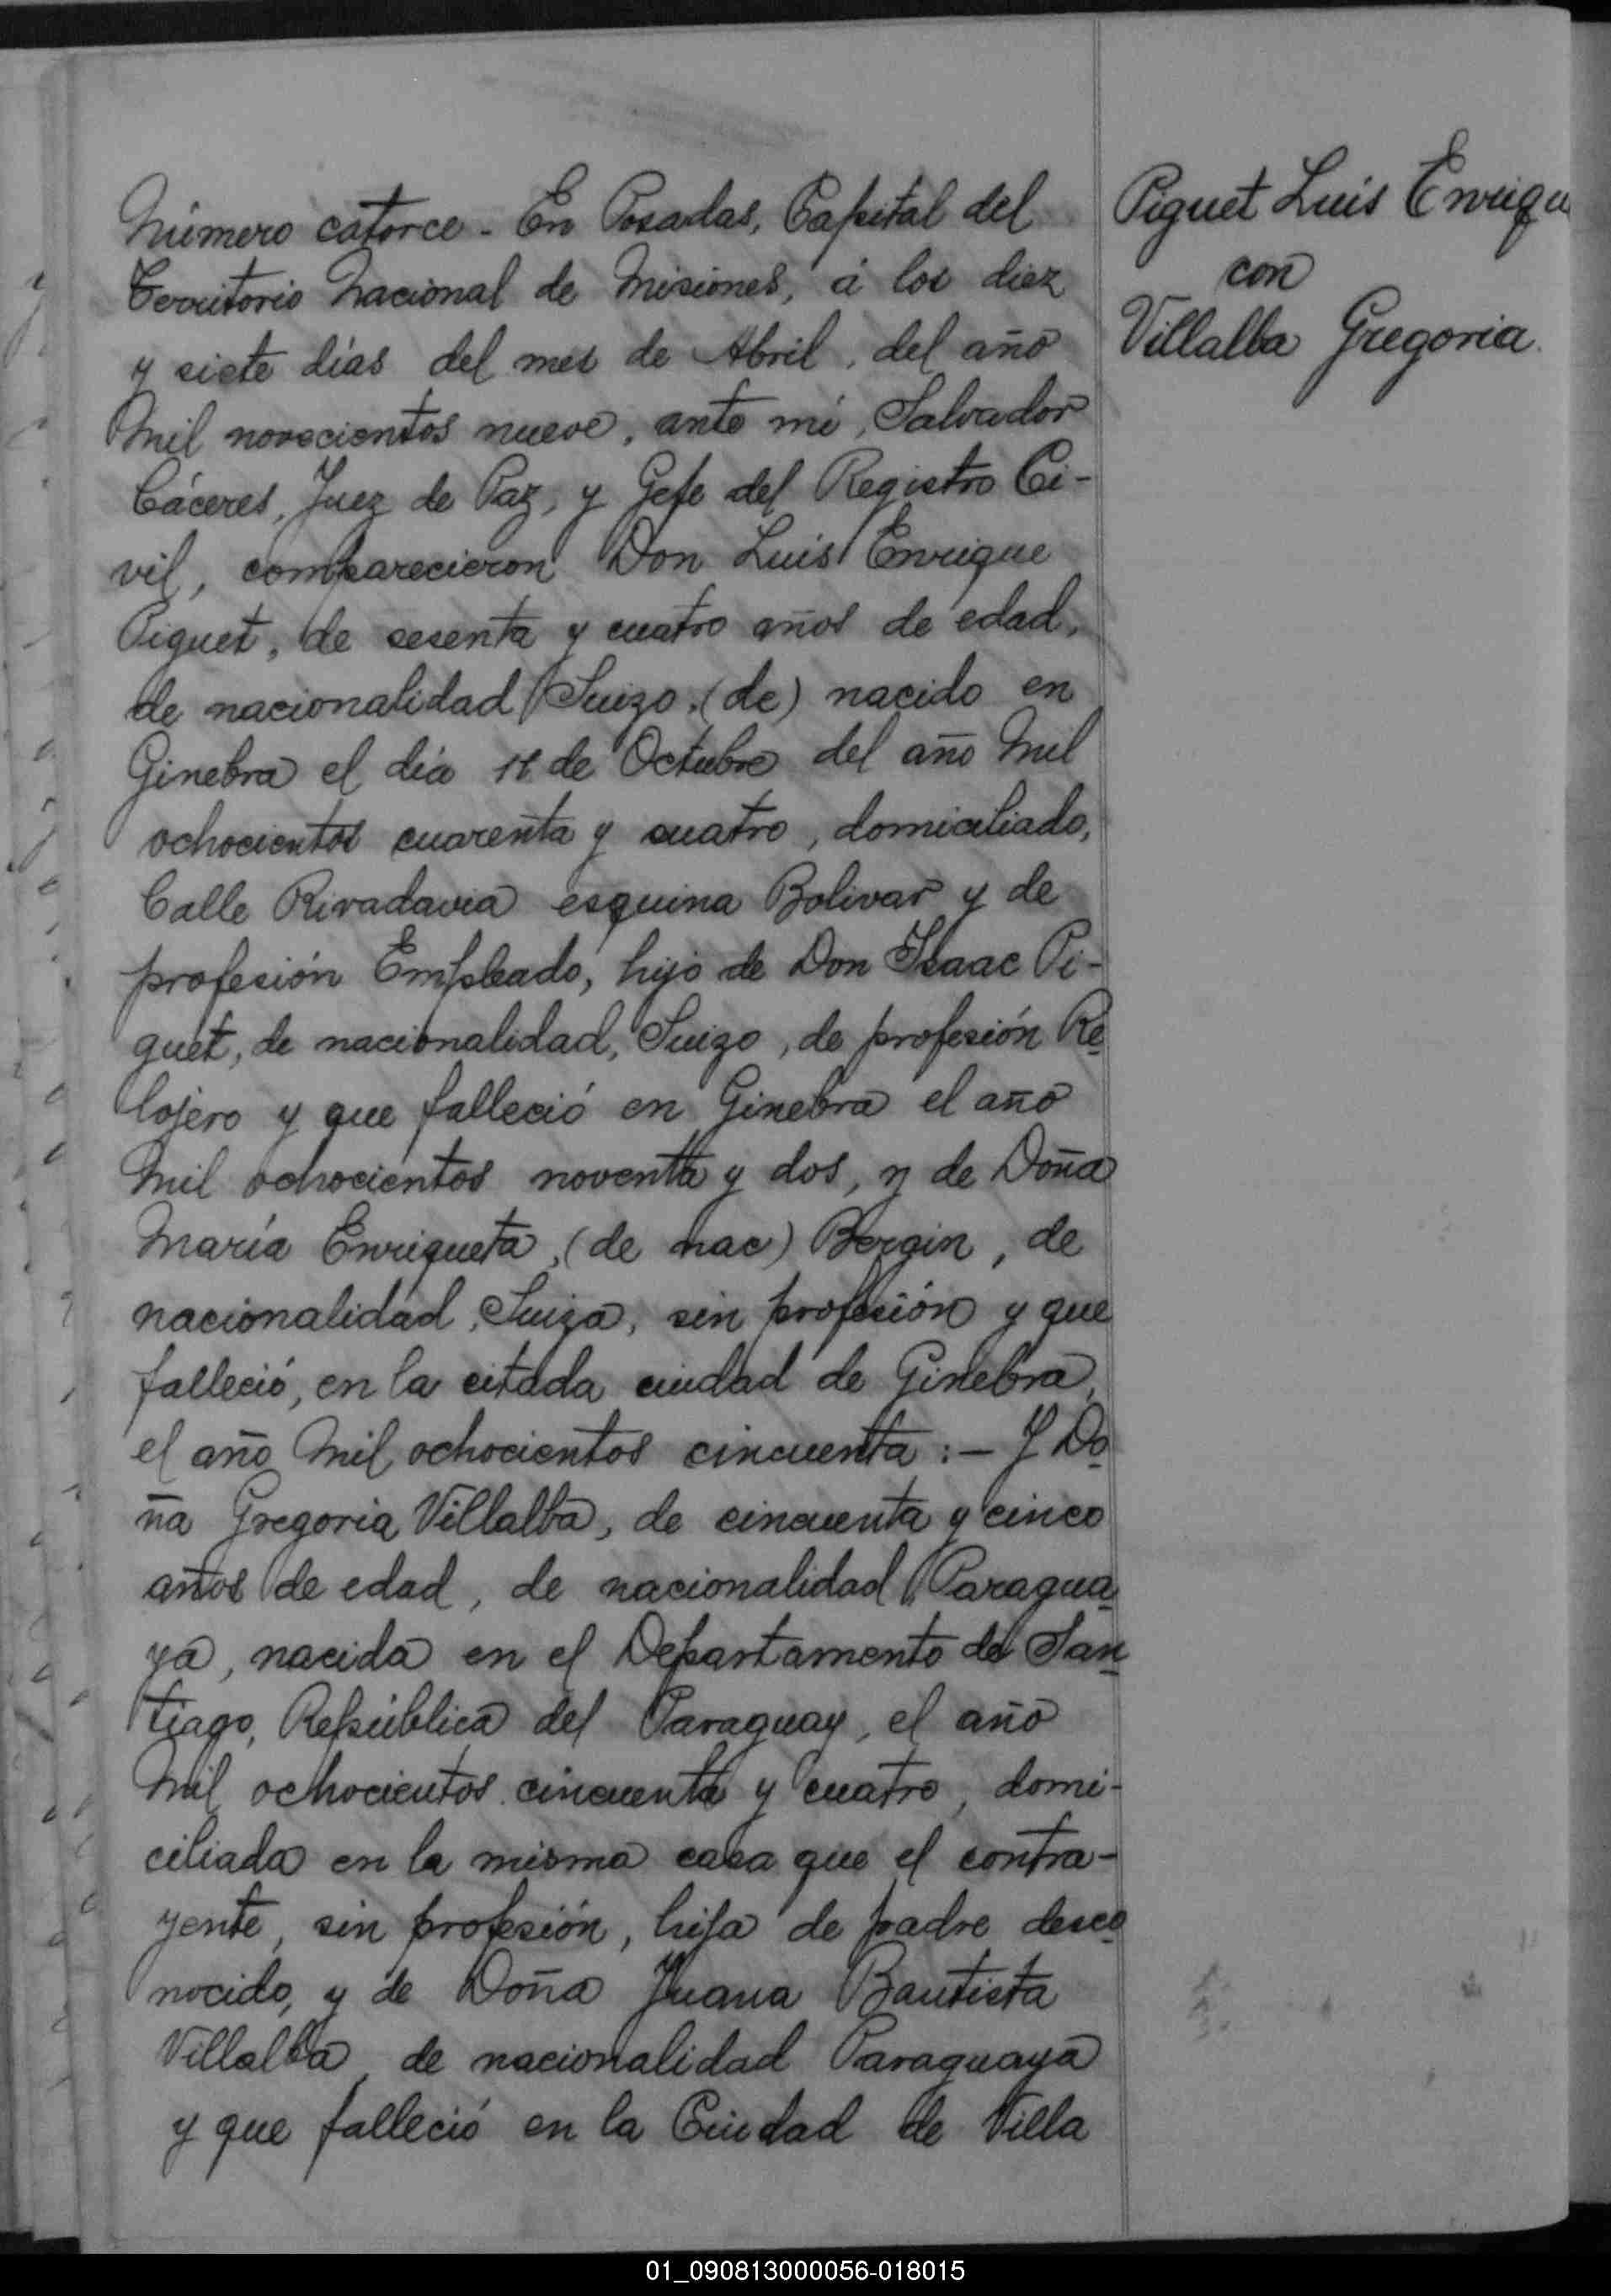 Número catorce - En Posadas, Capital del
Territorio Nacional de Misiones, á los diez
y siete días del mes de Abril, del año
Mil novecientos nueve, ante mí, Salvador
Cáceres, Juez de Paz, y Gefe del Registro Ci-
vil, comparecieron Don Luis Enrique
Piguet, de sesenta y cuatro años de edad,
de nacionalidad Suizo, (de) nacido en
Ginebra el día 11 de Octubre del año Mil
ochocientos cuarenta y cuatro, domiciliado,
Calle Rivadavia esquina Bolivar y de
profesión Empleado, hijo de Don Isaac Pi-
guet, de nacionalidad, Suizo, de profesión Re-
lojero y que falleció en Ginebra el año
Mil ochocientos noventa y dos, y de Doña
María Enriqueta, (de nac) Bergin, de
nacionalidad, Suiza, sin profesión y que
falleció, en la citada ciudad de Ginebra,
el año Mil ochocientos cincuenta: - Y Do-
ña Gregoria Villalba, de cincuenta y cinco
años de edad, de nacionalidad, Paragua-
ya, nacida en el Departamento de San-
tiago, República del Paraguay, el año
Mil ochocientos cincuenta y cuatro, domi-
ciliada en la misma casa que el contra-
yente, sin profesión, hija de padre desco-
nocido, y de Doña Juana Bautista
Villalba, de nacionalidad Paraguaya
y que falleció en la Ciudad de Villa
Piguet Luis Enrique
con
Villalba Gregoria.
01_090813000056-018015